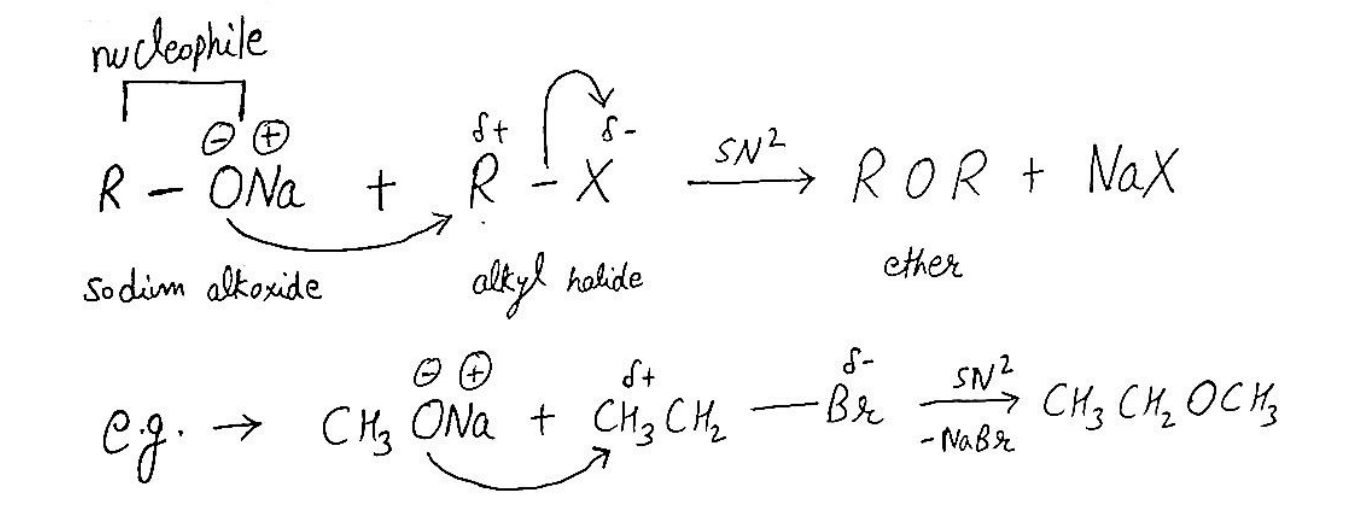 nucleophile
⊖ ⊕ δ+ δ-
R - ONa + R - X SN2 → ROR + NaX
sodium alkoxide alkyl halide ether
⊖ ⊕ δ+ δ-
e.g. → CH3 ONa + CH3CH2 — Br SN2 → -NaBr CH3CH2OCH3